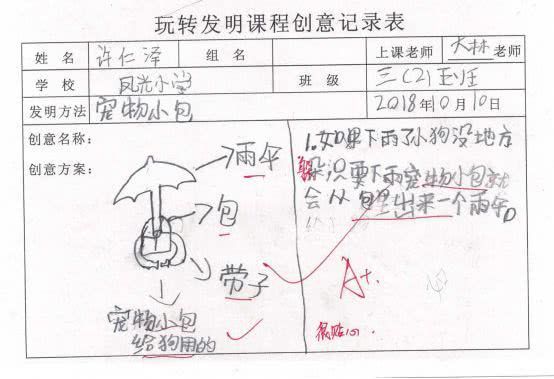 玩转发明课程创意记录表
姓 名 许仁泽 组 名 上课老师 大林老师
学 校 凤光小学 班 级 三(2)班
发明方法 宠物小包 2018年10月10日
创意名称:
创意方案:
雨伞
包
带子
宠物小包
给狗用的
1.如果下雨了小狗没地方
躲只要下雨宠物小包就
会从包里出来一个雨伞。
A+.
很贴心.